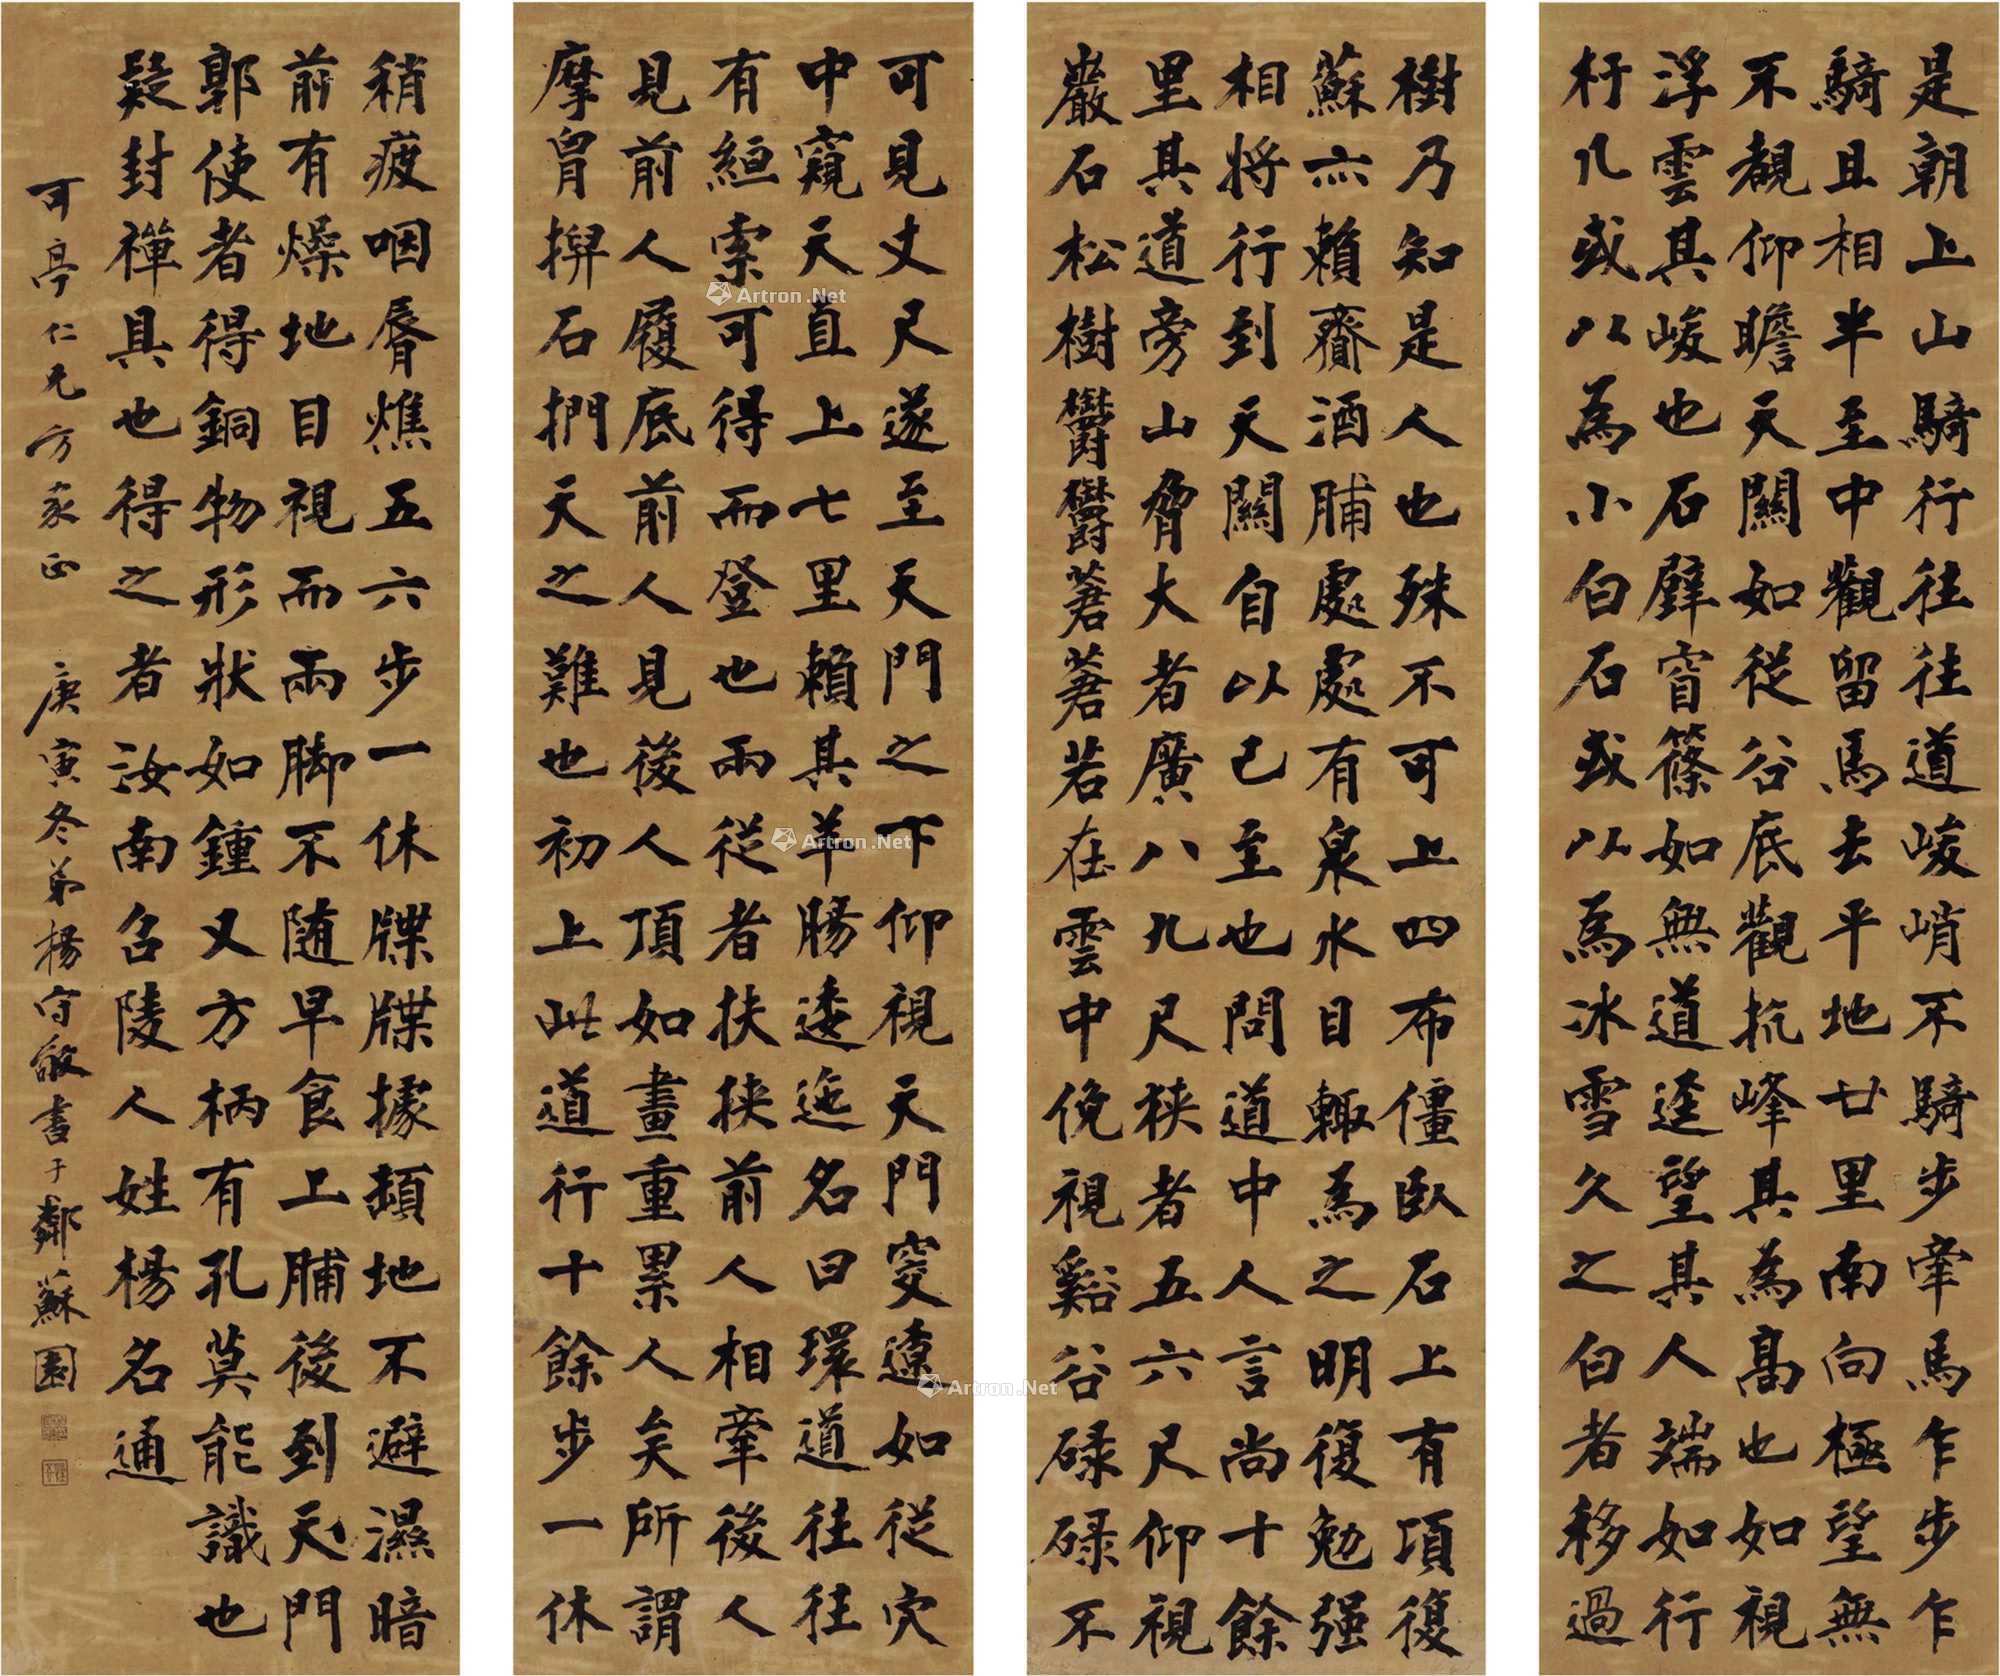 是朝上山騎行往往道峻峭不騎步牽馬乍步乍
騎且相半至中觀留馬去平地廿里南向極望無
不覩仰瞻天關如從谷底觀抗峰其為高也如視
浮雲其峻也石壁窅篠如無道逕望其人端如行
杅几或以為小白石或以為冰雪久之白者移過
樹乃知是人也殊不可上四布僵臥石上有項復
蘇亦賴齎酒脯處處有泉水目輙為之明復勉强
相將行到天關自以已至也問道中人言尚十餘
里其道旁山脅大者廣八九尺挾者五六尺仰視
巖石松樹鬱鬱蒼蒼若在雲中俛視谿谷碌碌不
可見丈尺遂至天門之下仰視天門窔遼如從穴
中窺天直上七里賴其羊腸逶迤名曰環道往往
有絙索可得而登也兩從者扶挾前人相牽後人
見前人履底前人見後人頂如畫重累人矣所謂
摩胷捍石捫天之難也初上此道行十餘步一休
稍疲咽脣燋五六步一休牒牒據頓地不避濕暗
前有燥地目視而兩脚不随早食上脯後到天門
郭使者得銅物形狀如鍾又方柄有孔莫能識也
疑封禪具也得之者汝南召陵人姓楊名通
可亭仁兄方家正 庚寅冬弟楊守敬書于鄰蘇園
Artron.Net
Artron.Net
Artron.Net